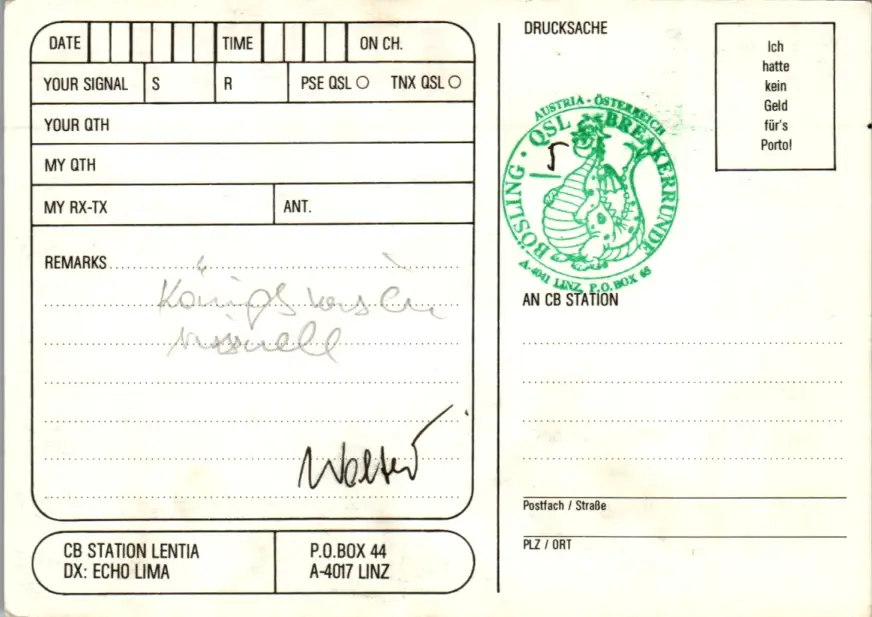 DATE TIME ON CH.
YOUR SIGNAL S R PSE QSL TNX QSL
YOUR QTH
MY QTH
MY RX-TX ANT.
REMARKS
Walter
CB STATION LENTIA
DX: ECHO LIMA
P.O.BOX 44
A-4017 LINZ
DRUCKSACHE
Ich
hatte
kein
Geld
für's
Porto!
AUSTRIA - ÖSTERREICH
BÖSLING · QSL BREAKERRUNDE
5
A-4041 LINZ, P.O.BOX 65
AN CB STATION
Postfach / Straße
PLZ / ORT